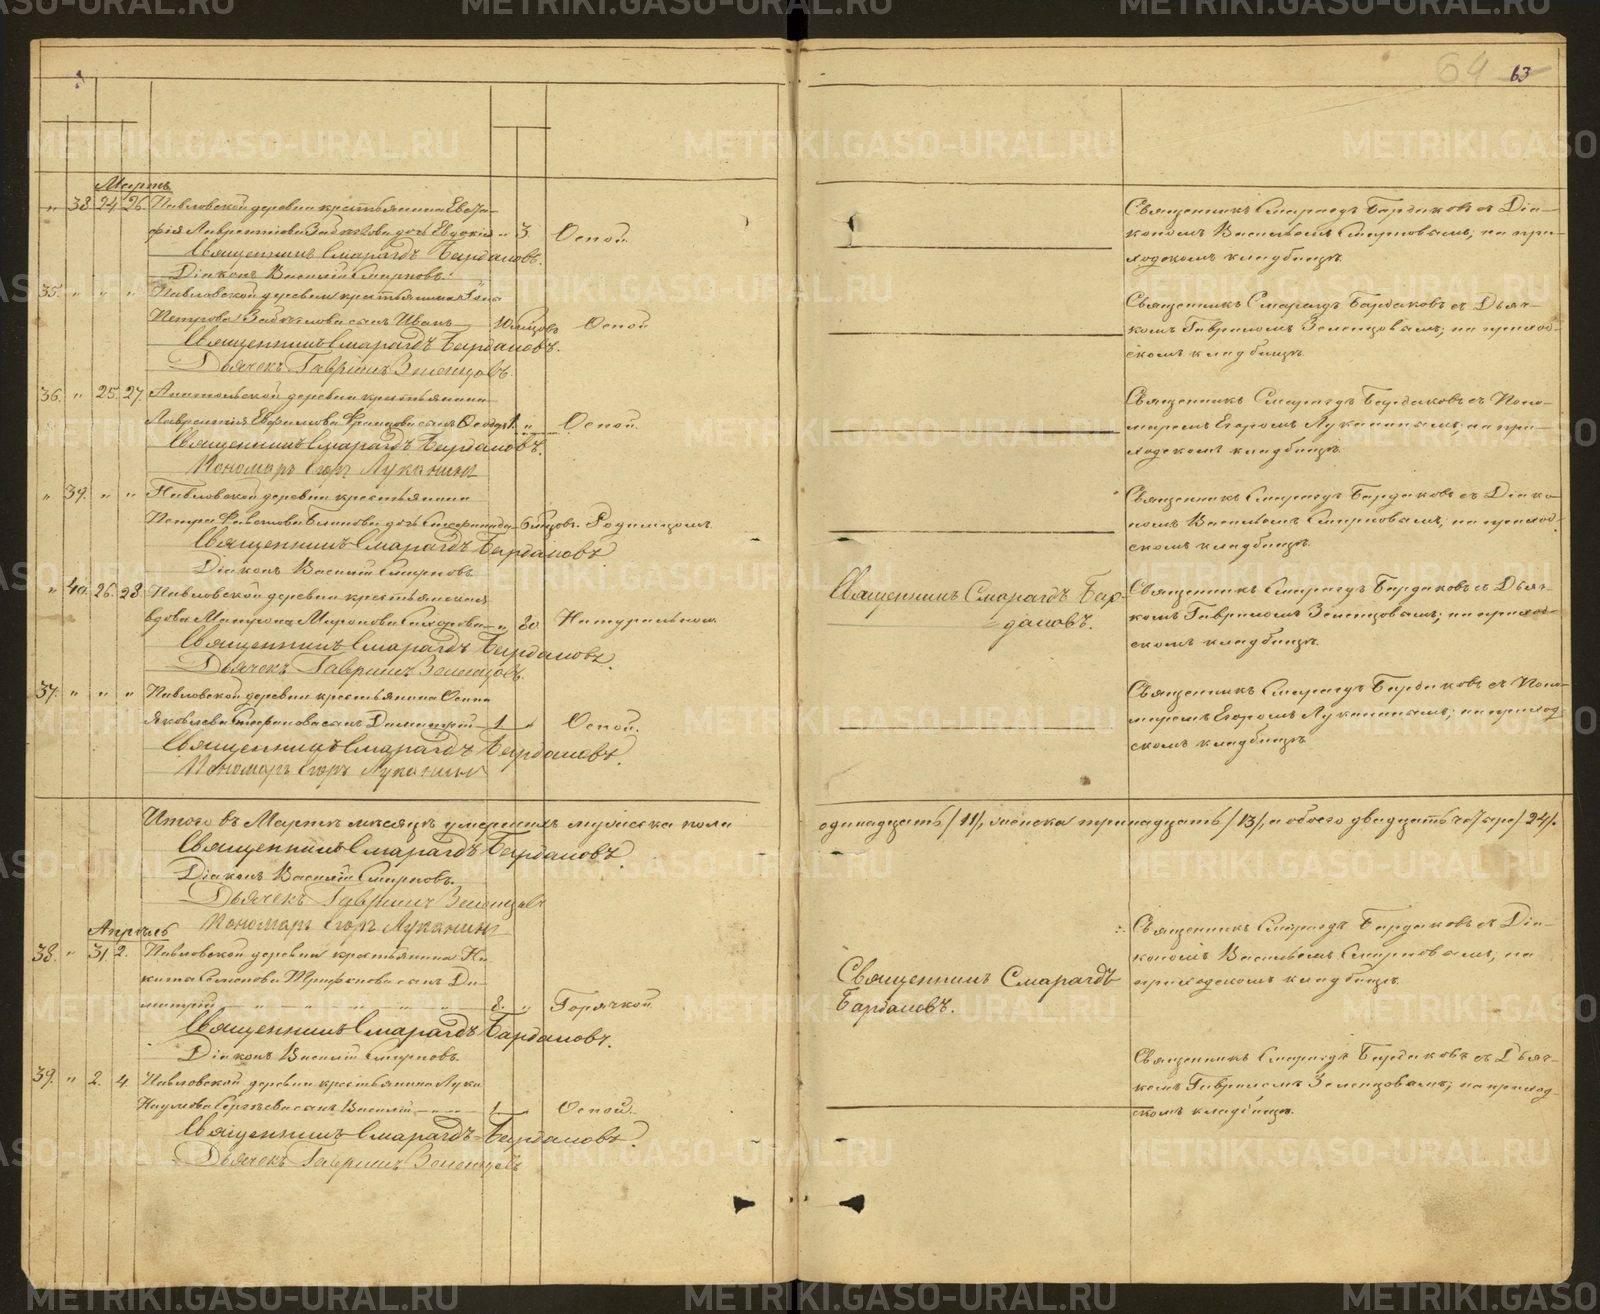 64 63
Мартъ
" 38 24 26 Павловской деревни крестьянина Евста-
фія Лаврентіева дочь Евдокія " 3 Оспой
Священникъ Смарагдъ Бардаковъ.
Діаконъ Василій Смирновъ.
35. " " " Павловской деревни крестьянина
Петрова сынъ Иванъ Оспой
Священникъ Смарагдъ Бардаковъ.
Дьячекъ Гавріилъ Зеленцовъ.
36. " 25. 27. Анатольской деревни крестьянина
Лаврентія Ефимова сынъ 1. " Оспой.
Священникъ Смарагдъ Бардаковъ.
Пономарь Егоръ Луканинъ
" 39. " " Павловской деревни крестьянина
Петра дочь 6 мѣсцовъ. Родимцомъ.
Священникъ Смарагдъ Бардаковъ.
Діаконъ Василій Смирновъ
" 40. 26. 28 Павловской деревни крестьянская
вдова Матрона Миронова " 80 Натурально.
Священникъ Смарагдъ Бардаковъ.
Дьячекъ Гавріилъ Зеленцовъ.
37. " " " Павловской деревни крестьянина Осипа
Яковлева сынъ Димитрій 1 " Оспой.
Священникъ Смарагдъ Бардаковъ.
Пономарь Егоръ Луканинъ
Итого въ Мартѣ мѣсяцѣ умершихъ мужеска пола
Священникъ Смарагдъ Бардаковъ.
Діаконъ Василій Смирновъ.
Дьячекъ Гавріилъ Зеленцовъ
Пономарь Егоръ Луканинъ
Апрѣль
38. " 31 2. Павловской деревни крестьянина Ни-
кита Семенова Трифанова сынъ Ди-
митрій 8. " Горячкой
Священникъ Смарагдъ Бардаковъ.
Діаконъ Василій Смирновъ.
39. " 2. 4 Павловской деревни крестьянина Луки
Наумова Сергѣева сынъ Василій 1 Оспой.
Священникъ Смарагдъ Бардаковъ.
Дьячекъ Гавріилъ Зеленцовъ
Священникъ Смарагдъ Бардаковъ съ Діа-
кономъ Васильемъ Смирновымъ; на при-
ходскомъ кладбищѣ.
Священникъ Смарагдъ Бардаковъ съ Дьяч-
комъ Гавриломъ Зеленцовымъ; на приход-
скомъ кладбищѣ.
Священникъ Смарагдъ Бардаковъ съ Поно-
маремъ Егоромъ Луканинымъ; на при-
ходскомъ кладбищѣ.
Священникъ Смарагдъ Бардаковъ съ Діако-
номъ Васильемъ Смирновымъ; на приход-
скомъ кладбищѣ.
Священникъ Смарагдъ Бар-
даковъ.
Священникъ Смарагдъ Бардаковъ съ Дьяч-
комъ Гавриломъ Зеленцовымъ; на приход-
скомъ кладбищѣ.
Священникъ Смарагдъ Бардаковъ съ Поно-
маремъ Егоромъ Луканинымъ; на приход-
скомъ кладбищѣ
одинадцать /11/, женска тринадцать /13/, а обоего двадцать четыре /24/.
Священникъ Смарагдъ
Бардаковъ.
Священникъ Смарагдъ Бардаковъ съ Діа-
кономъ Васильемъ Смирновымъ, на
приходскомъ кладбищѣ.
Священникъ Смарагдъ Бардаковъ съ Дьяч-
комъ Гавриломъ Зеленцовымъ; на приход-
скомъ кладбищѣ.
METRIKI.GASO-URAL.RU